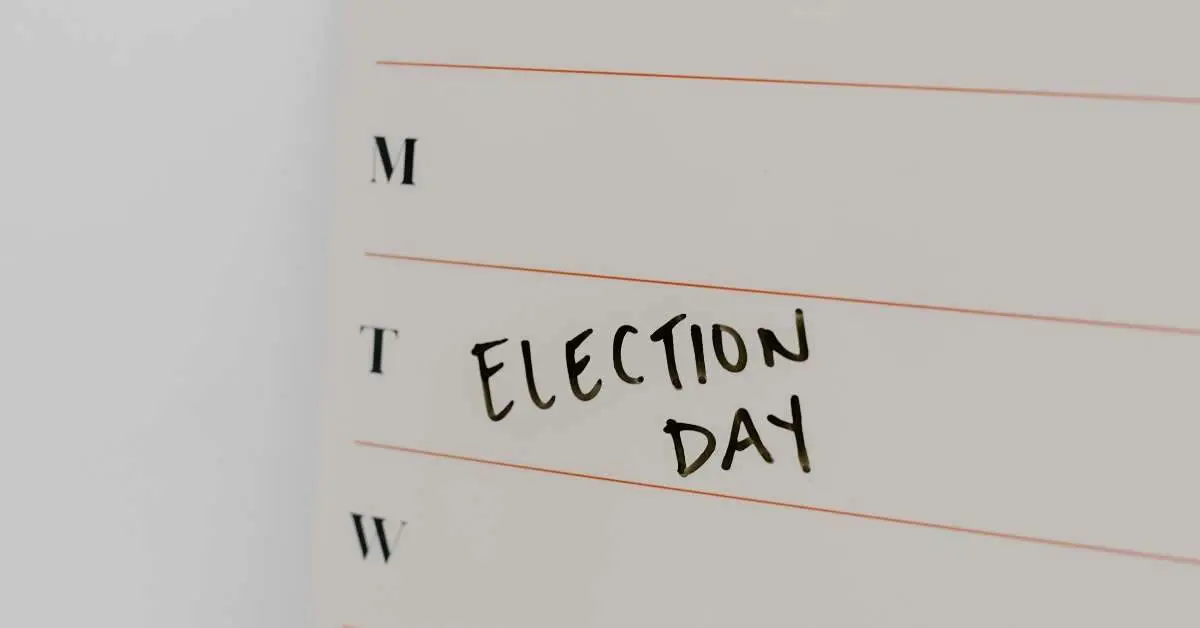 M
T ELECTION
DAY
W